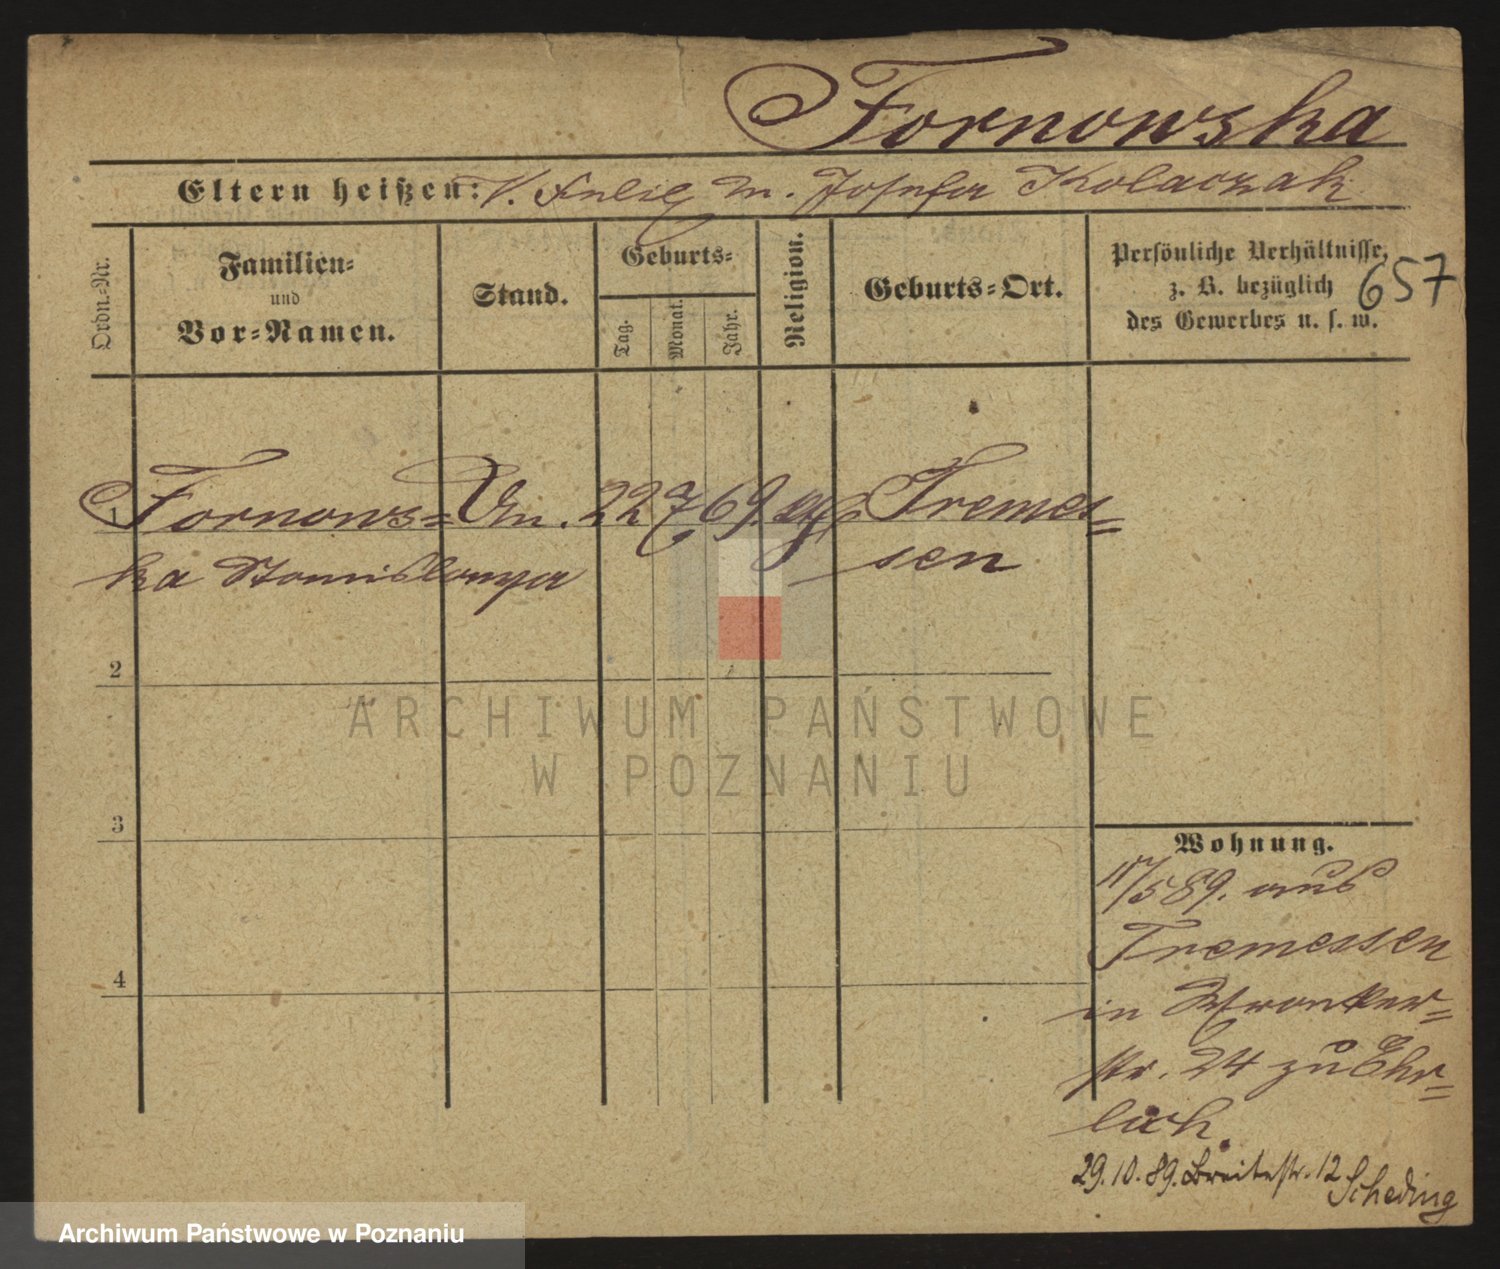 Fornowska
Eltern heißen: V. Felix M. Josefa Kolaczak
Ordn.-Nr.
Familien-
und
Vor-Namen.
Stand.
Geburts-
Tag.
Monat.
Jahr.
Religion.
Geburts-Ort.
Persönliche Verhältnisse,
z. B. bezüglich
des Gewerbes u. s. w.
657
1 Fornows= Un. 22 7 69. Tremes=
ka Stanislawa sen
2
3
4
ARCHIWUM PAŃSTWOWE
W POZNANIU
Wohnung.
17/5 89. aus
Tremessen
in Wronker=
str. 24 zu Ehr=
lich.
29.10.89. Breitestr. 12
Scheding
Archiwum Państwowe w Poznaniu